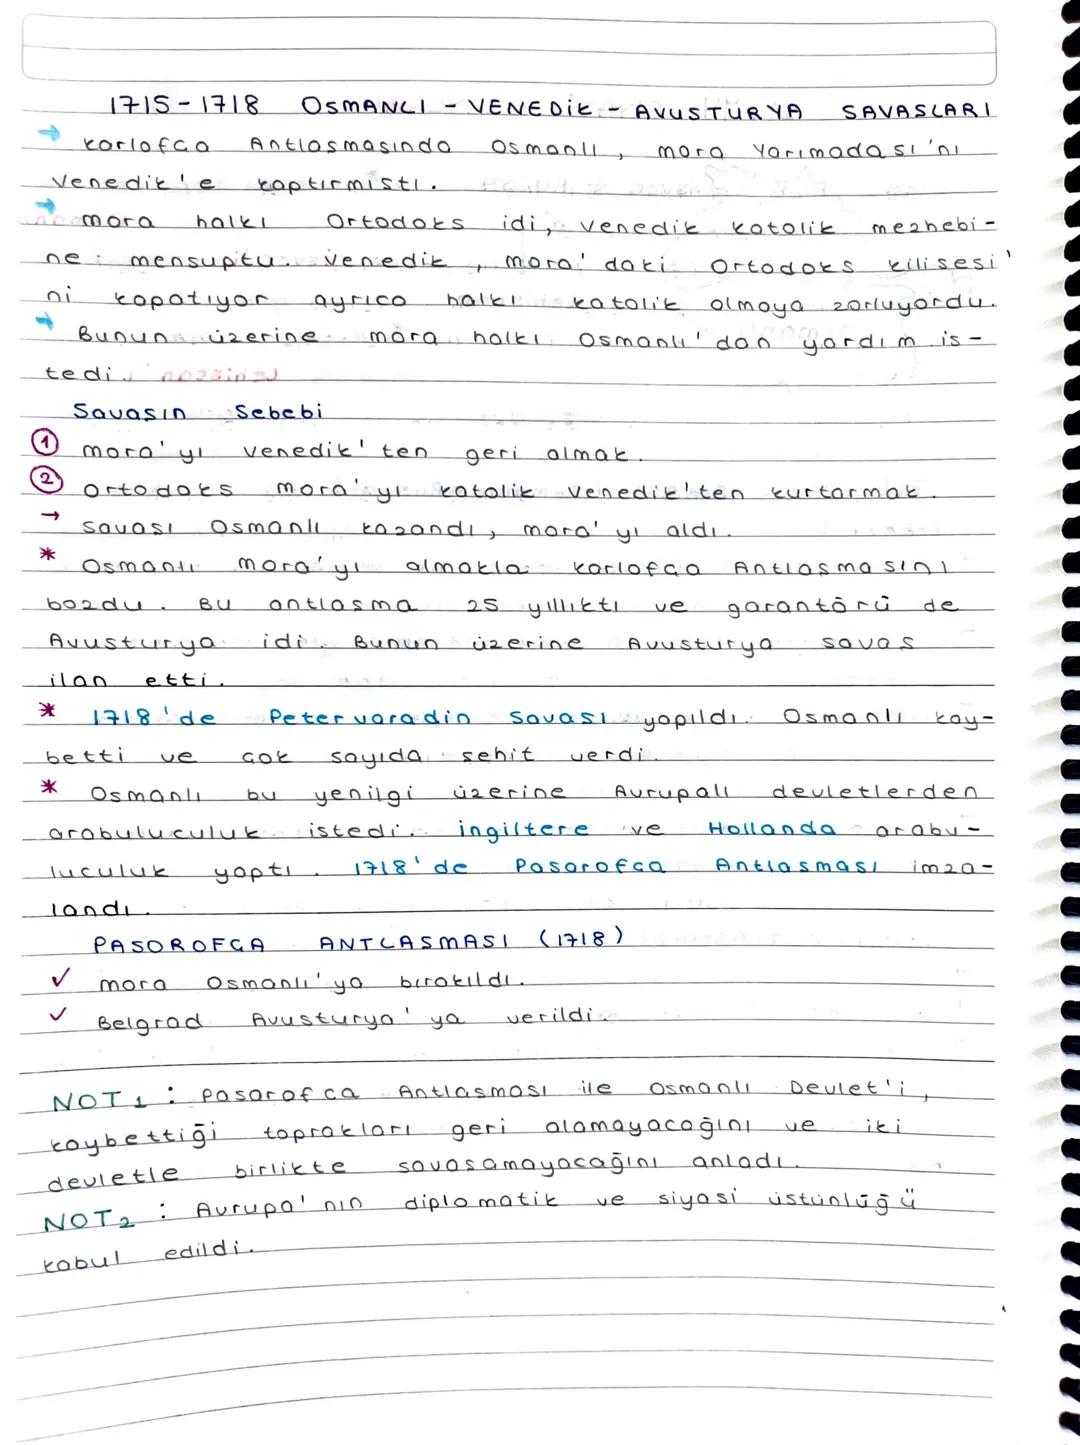 1715-1718 OSMANLI - VENEDİK - AVUSTURYA SAVASLARI
→ Karlofca Antlasmasında Osmanlı, mora Yarımadası'nı
Venedik'e kaptırmıstı.
→ mora halkı Ortodoks idi, Venedik katolik mezhebi-
ne mensuptu. Venedik, mora'daki Ortodoks kilisesi'
ni kapatıyor ayrıca halkı katolik olmaya zorluyordu.
→ Bunun üzerine mora halkı Osmanlı'dan yardım is-
tedi.
Savasın Sebebi
1 mora'yı Venedik'ten geri almak.
2 Ortodoks mora'yı katolik Venedik'ten kurtarmak.
→ savası Osmanlı kazandı, mora'yı aldı.
* Osmanlı mora'yı almakla karlofca Antlasmasını
bozdu. Bu antlasma 25 yıllıktı ve garantörü de
Avusturya idi. Bunun üzerine Avusturya savas
ilan etti.
* 1718'de Petervaradin Savası yapıldı. Osmanlı kay-
betti ve cok sayıda sehit verdi.
* Osmanlı bu yenilgi üzerine Avrupalı devletlerden
arabuluculuk istedi. ingiltere ve Hollanda arabu-
luculuk yaptı. 1718'de Pasarofca Antlasması imza-
landı.
PASOROFCA ANTLASMASI (1718)
✓ mora Osmanlı'ya bırakıldı.
✓ Belgrad Avusturya'ya verildi.
NOT1 : Pasarofca Antlasması ile Osmanlı Devlet'i,
kaybettiği toprakları geri alamayacağını ve iki
devletle birlikte savasamayacağını anladı.
NOT2 : Avrupa'nın diplomatik ve siyasi üstünlüğü
kabul edildi.